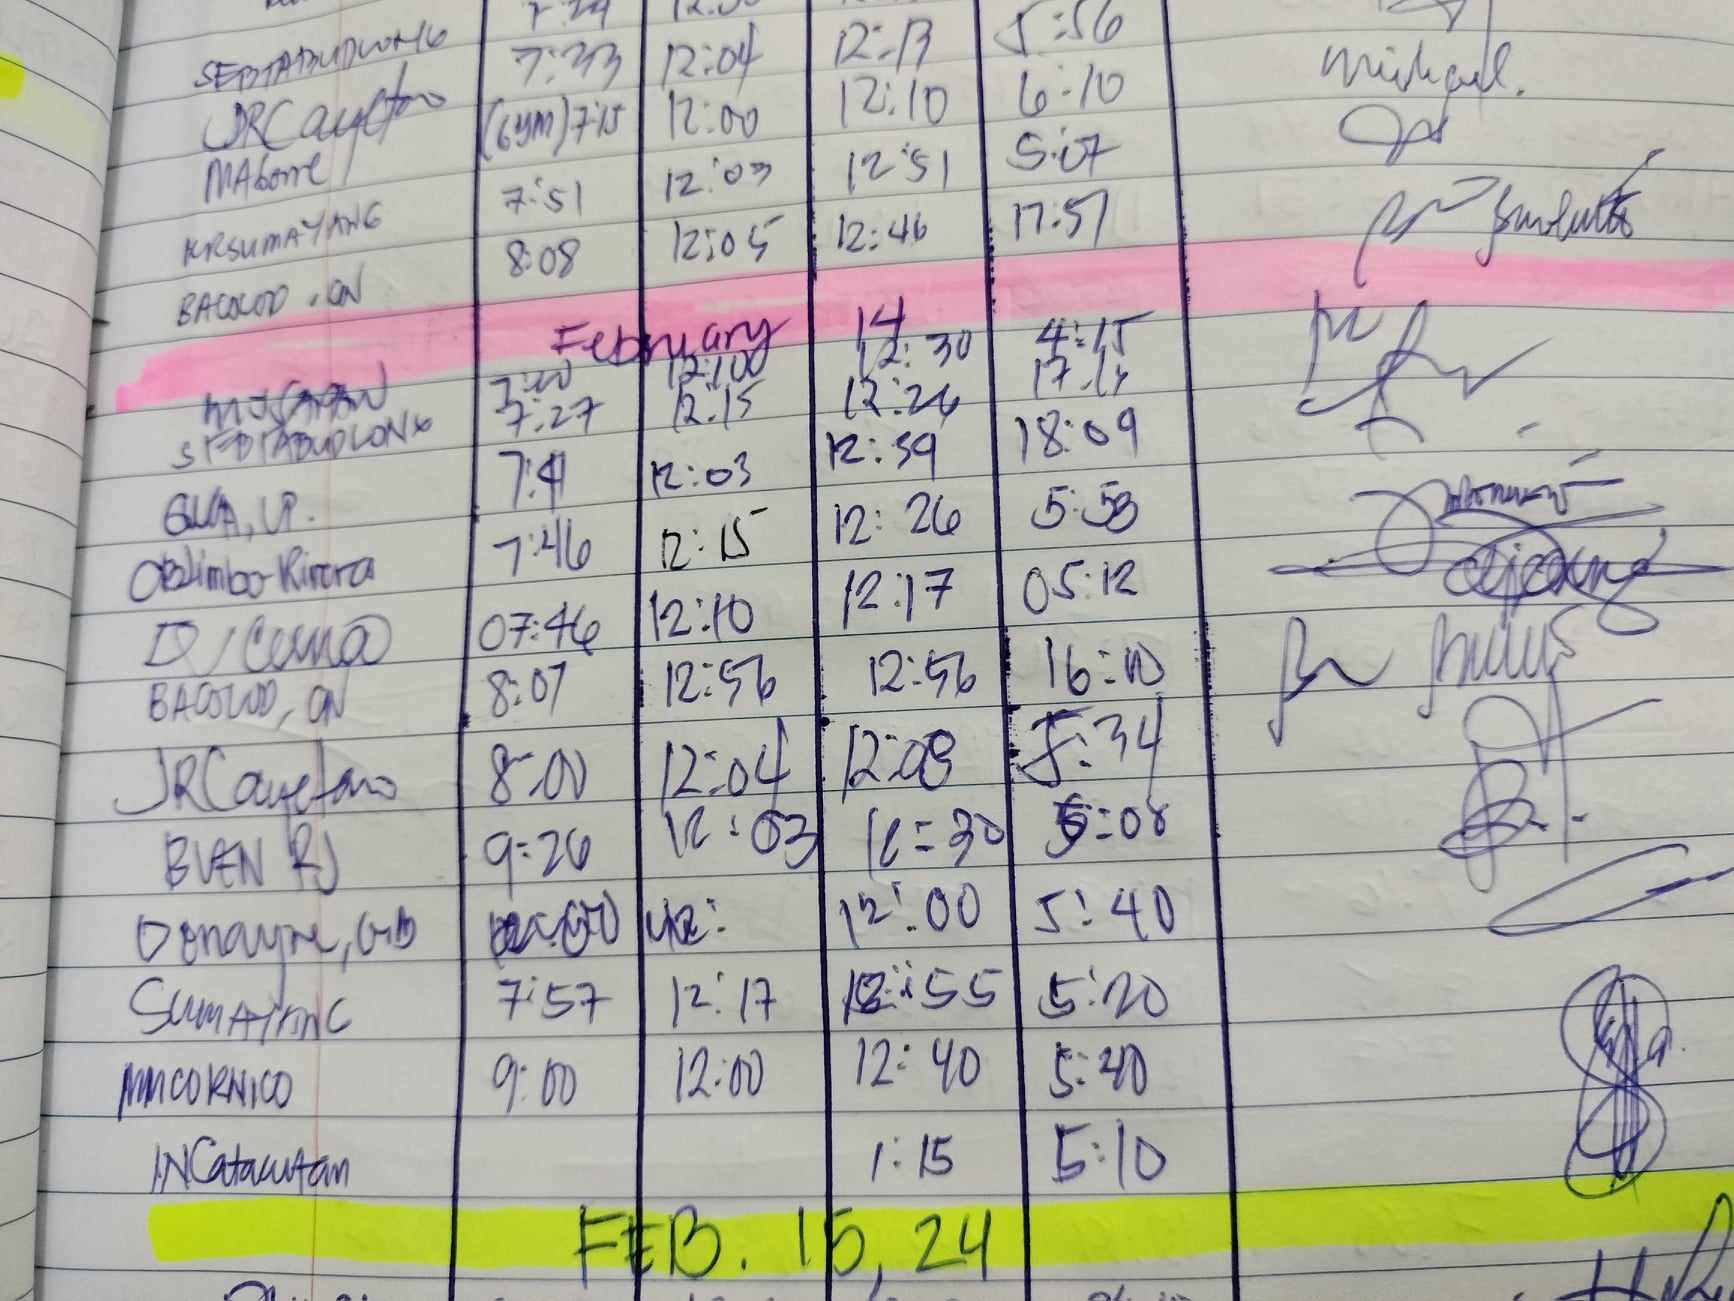 7:24
SEBTABUDLONG 7:33 12:04 12:13 5:56
JRCayetano (Gym) 7:15 12:00 12:10 6:10 Michael.
MAborre 7:51 12:03 12:51 5:07
KRSUMAYANG 8:08 12:05 12:46 17:57
BACOLOD, GN
February 14
7:20 12:00 12:30 4:15
SEBTABUDLONG 7:27 12:15 12:26
7:41 12:03 12:39 18:09
7:46 12:15 12:26 5:53
07:46 12:10 12:17 05:12
BACOLOD, GN 8:07 12:56 12:56 16:10
JRCayetano 8:00 12:04 12:08 5:34
BUEN RJ 9:26 12:03 12:30 5:08
Donayre, GB 12: 12:00 5:40
SUMAYANG 7:57 12:17 12:55 5:20
MMCORNICO 9:00 12:00 12:40 5:40
INCatacutan 1:15 5:10
FEB. 15, 24